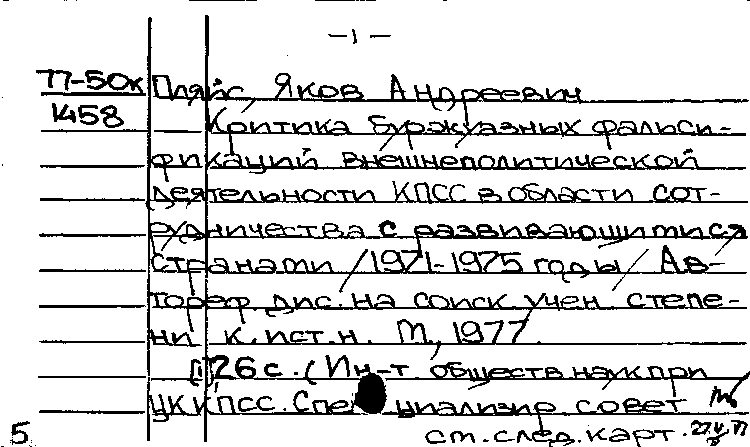 — 1 —
77-50к Пляйс, Яков Андреевич
1458 Критика буржуазных фальси-
фикаций внешнеполитической
деятельности КПСС в области сот-
рудничества с развивающимися
странами /1971-1975 годы/ Ав-
тореф. дис. на соиск. учен. степе-
ни к. ист. н. М., 1977.
[1] 26 с. (Ин-т обществ. наук при
ЦК КПСС. Специализир. совет
5 см. след. карт.